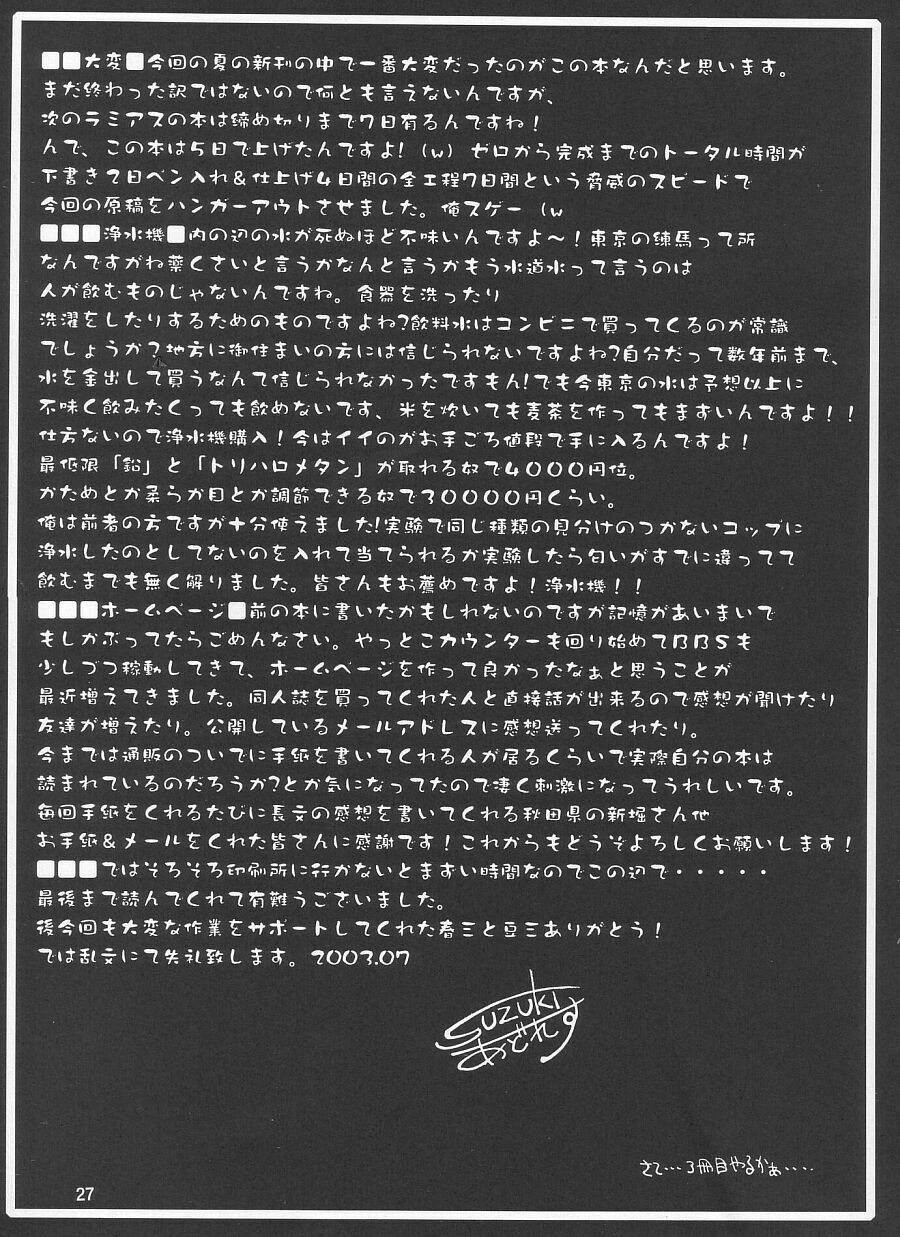 ■■大変■今回の夏の新刊の中で一番大変だったのがこの本なんだと思います。
まだ終わった訳ではないので何とも言えないんですが、
次のラミアスの本は締め切りまで7日有るんですね！
んで、この本は5日で上げたんですよ!（w）ゼロから完成までのトータル時間が
下書き2日ペン入れ＆仕上げ4日間の全工程7日間という脅威のスピードで
今回の原稿をハンガーアウトさせました。俺スゲー（w
■■■浄水機■内の辺の水が死ぬほど不味いんですよ〜！東京の練馬って所
なんですがね薬くさいと言うかなんと言うかもう水道水って言うのは
人が飲むものじゃないんですね。食器を洗ったり
洗濯をしたりするためのものですよね?飲料水はコンビニで買ってくるのが常識
でしょうか?地方に御住まいの方には信じられないですよね?自分だって数年前まで、
水を金出して買うなんて信じられなかったですもん!でも今東京の水は予想以上に
不味く飲みたくっても飲めないです、米を炊いても麦茶を作ってもまずいんですよ！！
仕方ないので浄水機購入！今はイイのがお手ごろ値段で手に入るんですよ！
最低限「鉛」と「トリハロメタン」が取れる奴で4000円位。
かためとか柔らか目とか調節できる奴で30000円くらい。
俺は前者の方ですが十分使えました!実験で同じ種類の見分けのつかないコップに
浄水したのとしてないのを入れて当てられるか実験したら匂いがすでに違ってて
飲むまでも無く解りました。皆さんもお薦めですよ！浄水機！！
■■■ホームページ■前の本に書いたかもしれないのですが記憶があいまいで
もしかぶってたらごめんなさい。やっとこカウンターも回り始めてBBSも
少しづつ稼動してきて、ホームページを作って良かったなぁと思うことが
最近増えてきました。同人誌を買ってくれた人と直接話が出来るので感想が聞けたり
友達が増えたり。公開しているメールアドレスに感想送ってくれたり。
今までは通販のついでに手紙を書いてくれる人が居るくらいで実際自分の本は
読まれているのだろうか?とか気になってたので凄く刺激になってうれしいです。
毎回手紙をくれるたびに長文の感想を書いてくれる秋田県の新堀さん他
お手紙＆メールをくれた皆さんに感謝です！これからもどうぞよろしくお願いします！
■■■ではそろそろ印刷所に行かないとまずい時間なのでこの辺で・・・・・
最後まで読んでくれて有難うございました。
後今回も大変な作業をサポートしてくれた春三と豆三ありがとう！
では乱文にて失礼致します。2003.07
SUZUKI
あどれす
さて…3冊目やるかぁ‥‥
27